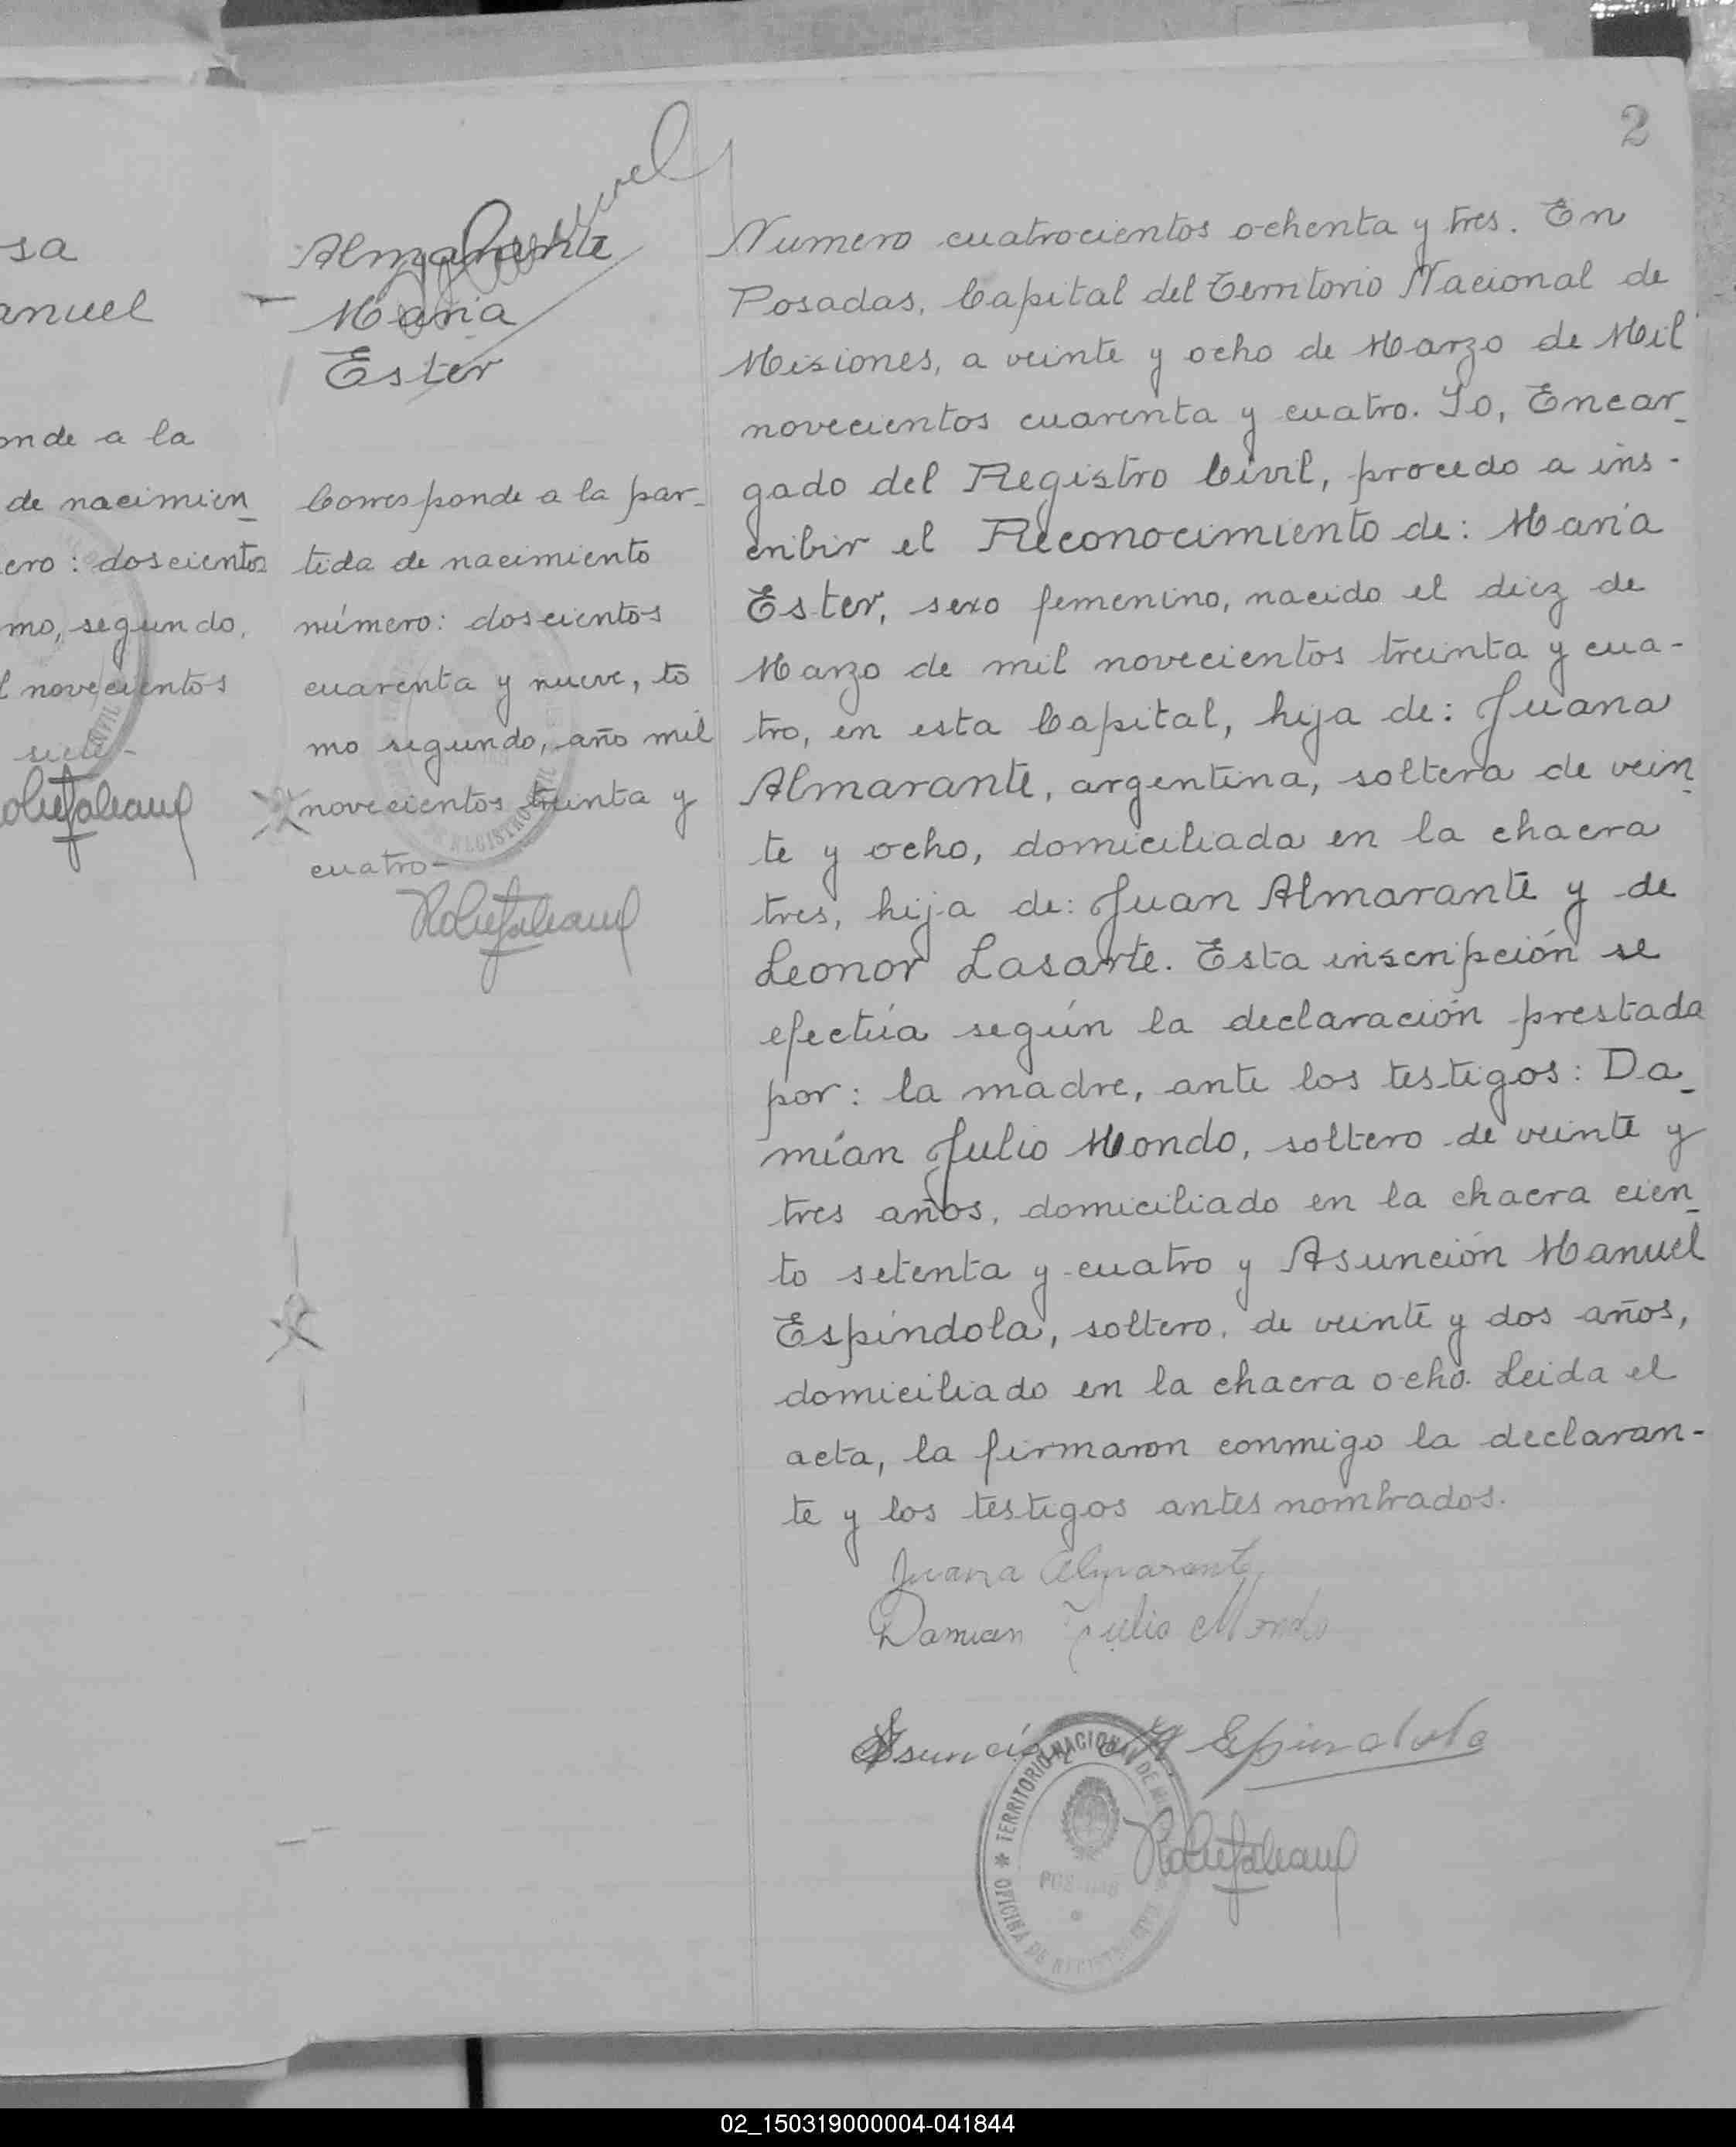 2
sa
anuel
onde a la
de nacimien_
ero: doscientos
mo, segundo,
l novecientos
siete-
Almarante
Maria
Ester
Corresponde a la par_
tida de nacimiento
número: doscientos
cuarenta y nueve, to
mo segundo, año mil
novecientos treinta y
cuatro-
Numero cuatrocientos ochenta y tres. En
Posadas, Capital del Territorio Nacional de
Misiones, a veinte y ocho de Marzo de Mil
novecientos cuarenta y cuatro. Yo, Encar_
gado del Registro Civil, procedo a ins-
cribir el Reconocimiento de: María
Ester, sexo femenino, nacido el diez de
Marzo de mil novecientos treinta y cua-
tro, en esta Capital, hija de: Juana
Almarante, argentina, soltera de vein_
te y ocho, domiciliada en la chacra
tres, hija de: Juan Almarante y de
Leonor Lasarte. Esta inscripción se
efectúa según la declaración prestada
por: la madre, ante los testigos: Da_
mían Julio Mondo, soltero de veinte y
tres años, domiciliado en la chacra cien_
to setenta y cuatro y Asunción Manuel
Espíndola, soltero, de veinte y dos años,
domiciliado en la chacra ocho. Leida el
acta, la firmaron conmigo la declaran-
te y los testigos antes nombrados.
Juana Almarante
Damian Julio Mondo
Asunción M. Espindola
TERRITORIO NACIONAL DE
OFICINA DE REGISTRO CIVIL
02_150319000004-041844